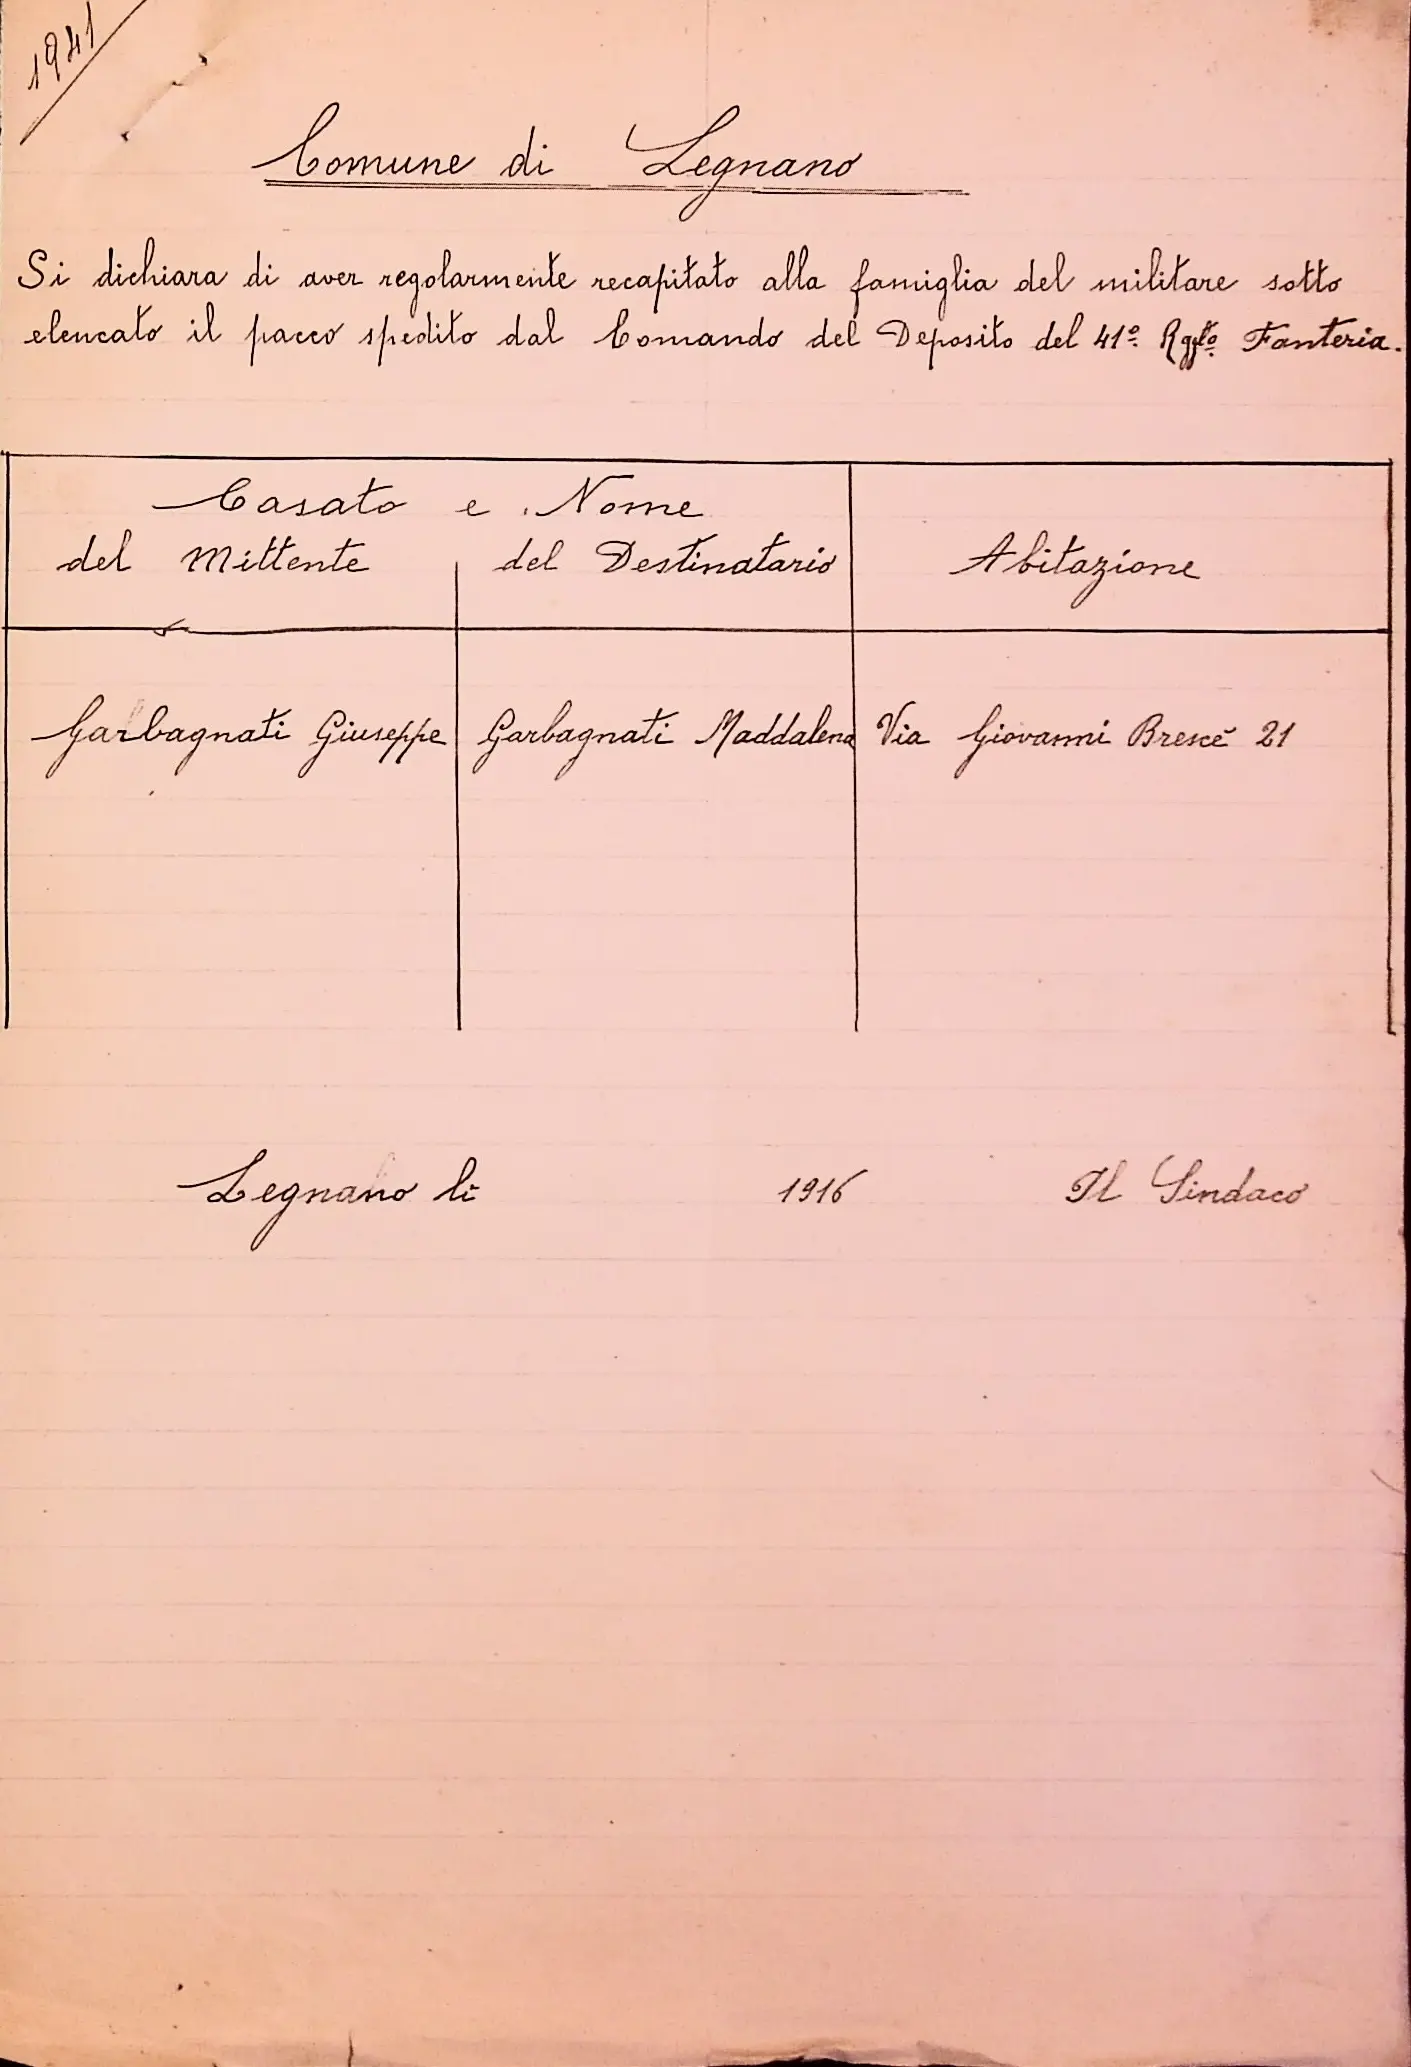 1941
Comune di Legnano
Si dichiara di aver regolarmente recapitato alla famiglia del militare sotto
elencato il pacco spedito dal Comando del Deposito del 41º Rggto Fanteria.
Casato e Nome
del Mittente del Destinatario Abitazione
Garbagnati Giuseppe Garbagnati Maddalena Via Giovanni 21
Legnano li 1916 Il Sindaco